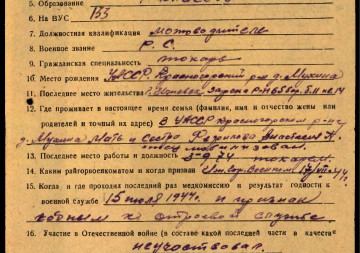 5. Образование
6. На ВУС 133
7. Должностная квалификация мотоводитель
8. Военное звание Р. С.
9. Гражданская специальность токарь
10. Место рождения УАССР, Красногорский р-н д. Мухина
11. Последнее место жительства г. Ижевск
12. Где проживает в настоящее время семья (фамилия, имя и отчество жены или
родителей и точный их адрес) В УАССР Красногорском р-не
д. Мухина Мать и Сестра Анастасия К.
отец мобилизован.
13. Последнее место работы и должность з-д 74 токарем.
14. Каким райгорвоенкоматом и когда призван
15. Когда и где проходил последний раз медкомиссию и результат годности к
военной службе 15 июля 1944 г. и признан
годным к строевой службе
16. Участие в Отечественной войне (в составе какой последней части в качестве
неучаствовал.